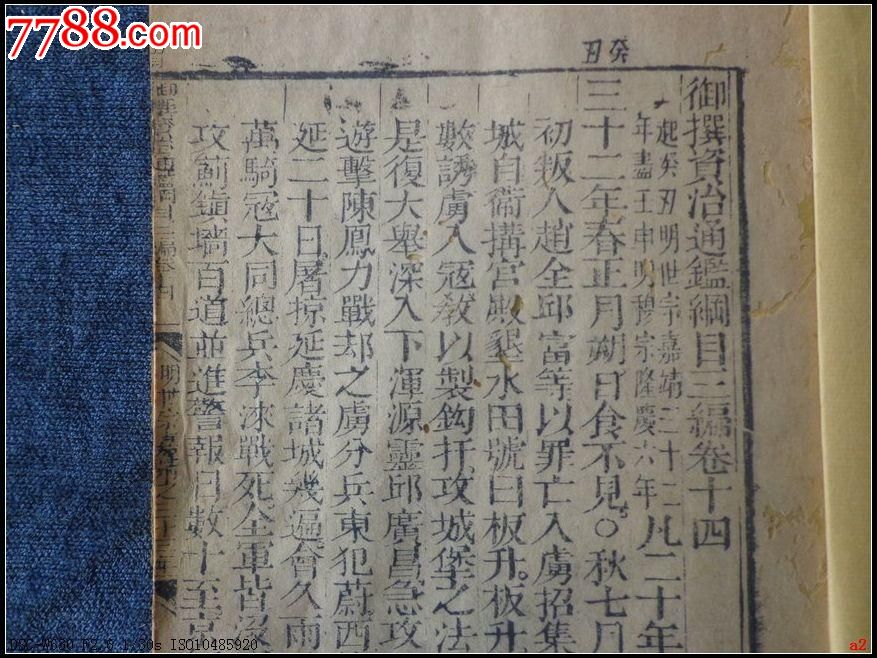 7788.com
癸丑
御撰資治通鑑綱目三編卷十四
起癸丑明世宗嘉靖三十二
年盡壬申明穆宗隆慶六年
凡二十年
三十二年春正月朔日食不見○秋七月
初叛人趙全邱富等以罪亡入虜招集
城自衞搆宮殿墾水田號曰板升板升
數誘虜入寇敎以製鈎扦攻城堡之法
是復大舉深入下渾源靈邱廣昌急攻
遊擊陳鳳力戰却之虜分兵東犯蔚西
延二十日屠掠延慶諸城幾遍會久雨
萬騎寇大同總兵李淶戰死全軍皆沒
攻薊鎮墻百道並進警報日數十至京
ISO10485920
a2